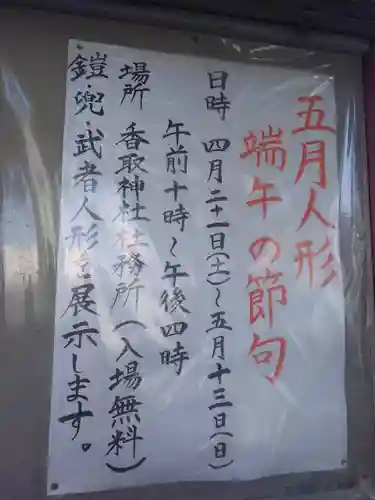 五月人形
端午の節句
日時 四月二十一日(土)~五月十三日(日)
午前十時~午後四時
場所 香取神社社務所(入場無料)
鎧・兜・武者人形を展示します。